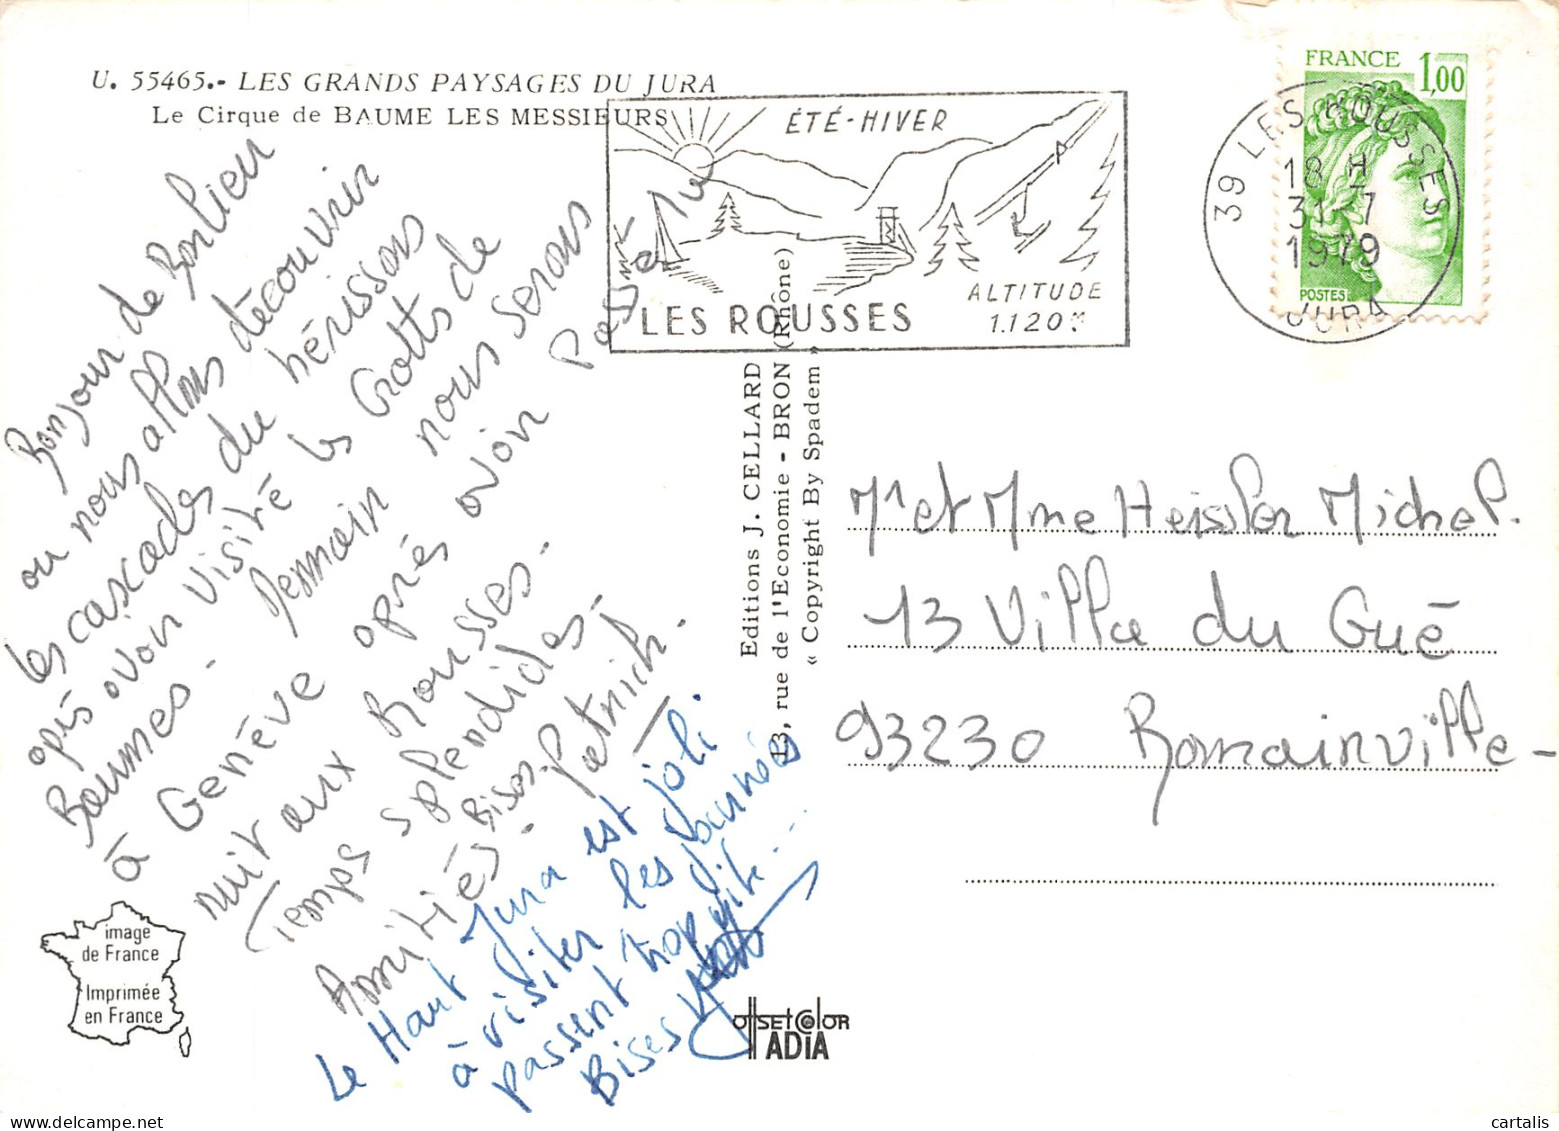 U. 55465.- LES GRANDS PAYSAGES DU JURA
Le Cirque de BAUME LES MESSIEURS
ÉTÉ-HIVER
ALTITUDE
1.120 M
LES ROUSSES
FRANCE 1,00
POSTES
39 LES ROUSSES
18 H
31-7
1979
JURA
Bonjour de Bonlieu
ou nous allons découvrir
les cascades du hérisson
après avoir visité les Grotts de
Baumes. Demain nous serons
à Genève après avoir passé la
nuit aux Rousses.
Temps splendides.
Amitiés. Bises. Patrick.
Le Haut Jura est joli
à visiter les journées
passent trop vite...
Bises
Editions J. CELLARD
13, rue de l'Economie - BRON (Rhône)
« Copyright By Spadem »
Mr et Mme Heissler Michel.
13 Villa du Gué
93230 Romainville-
image
de France
Imprimée
en France
OffSET COLOR
ADIA
cartalis
www.delcampe.net